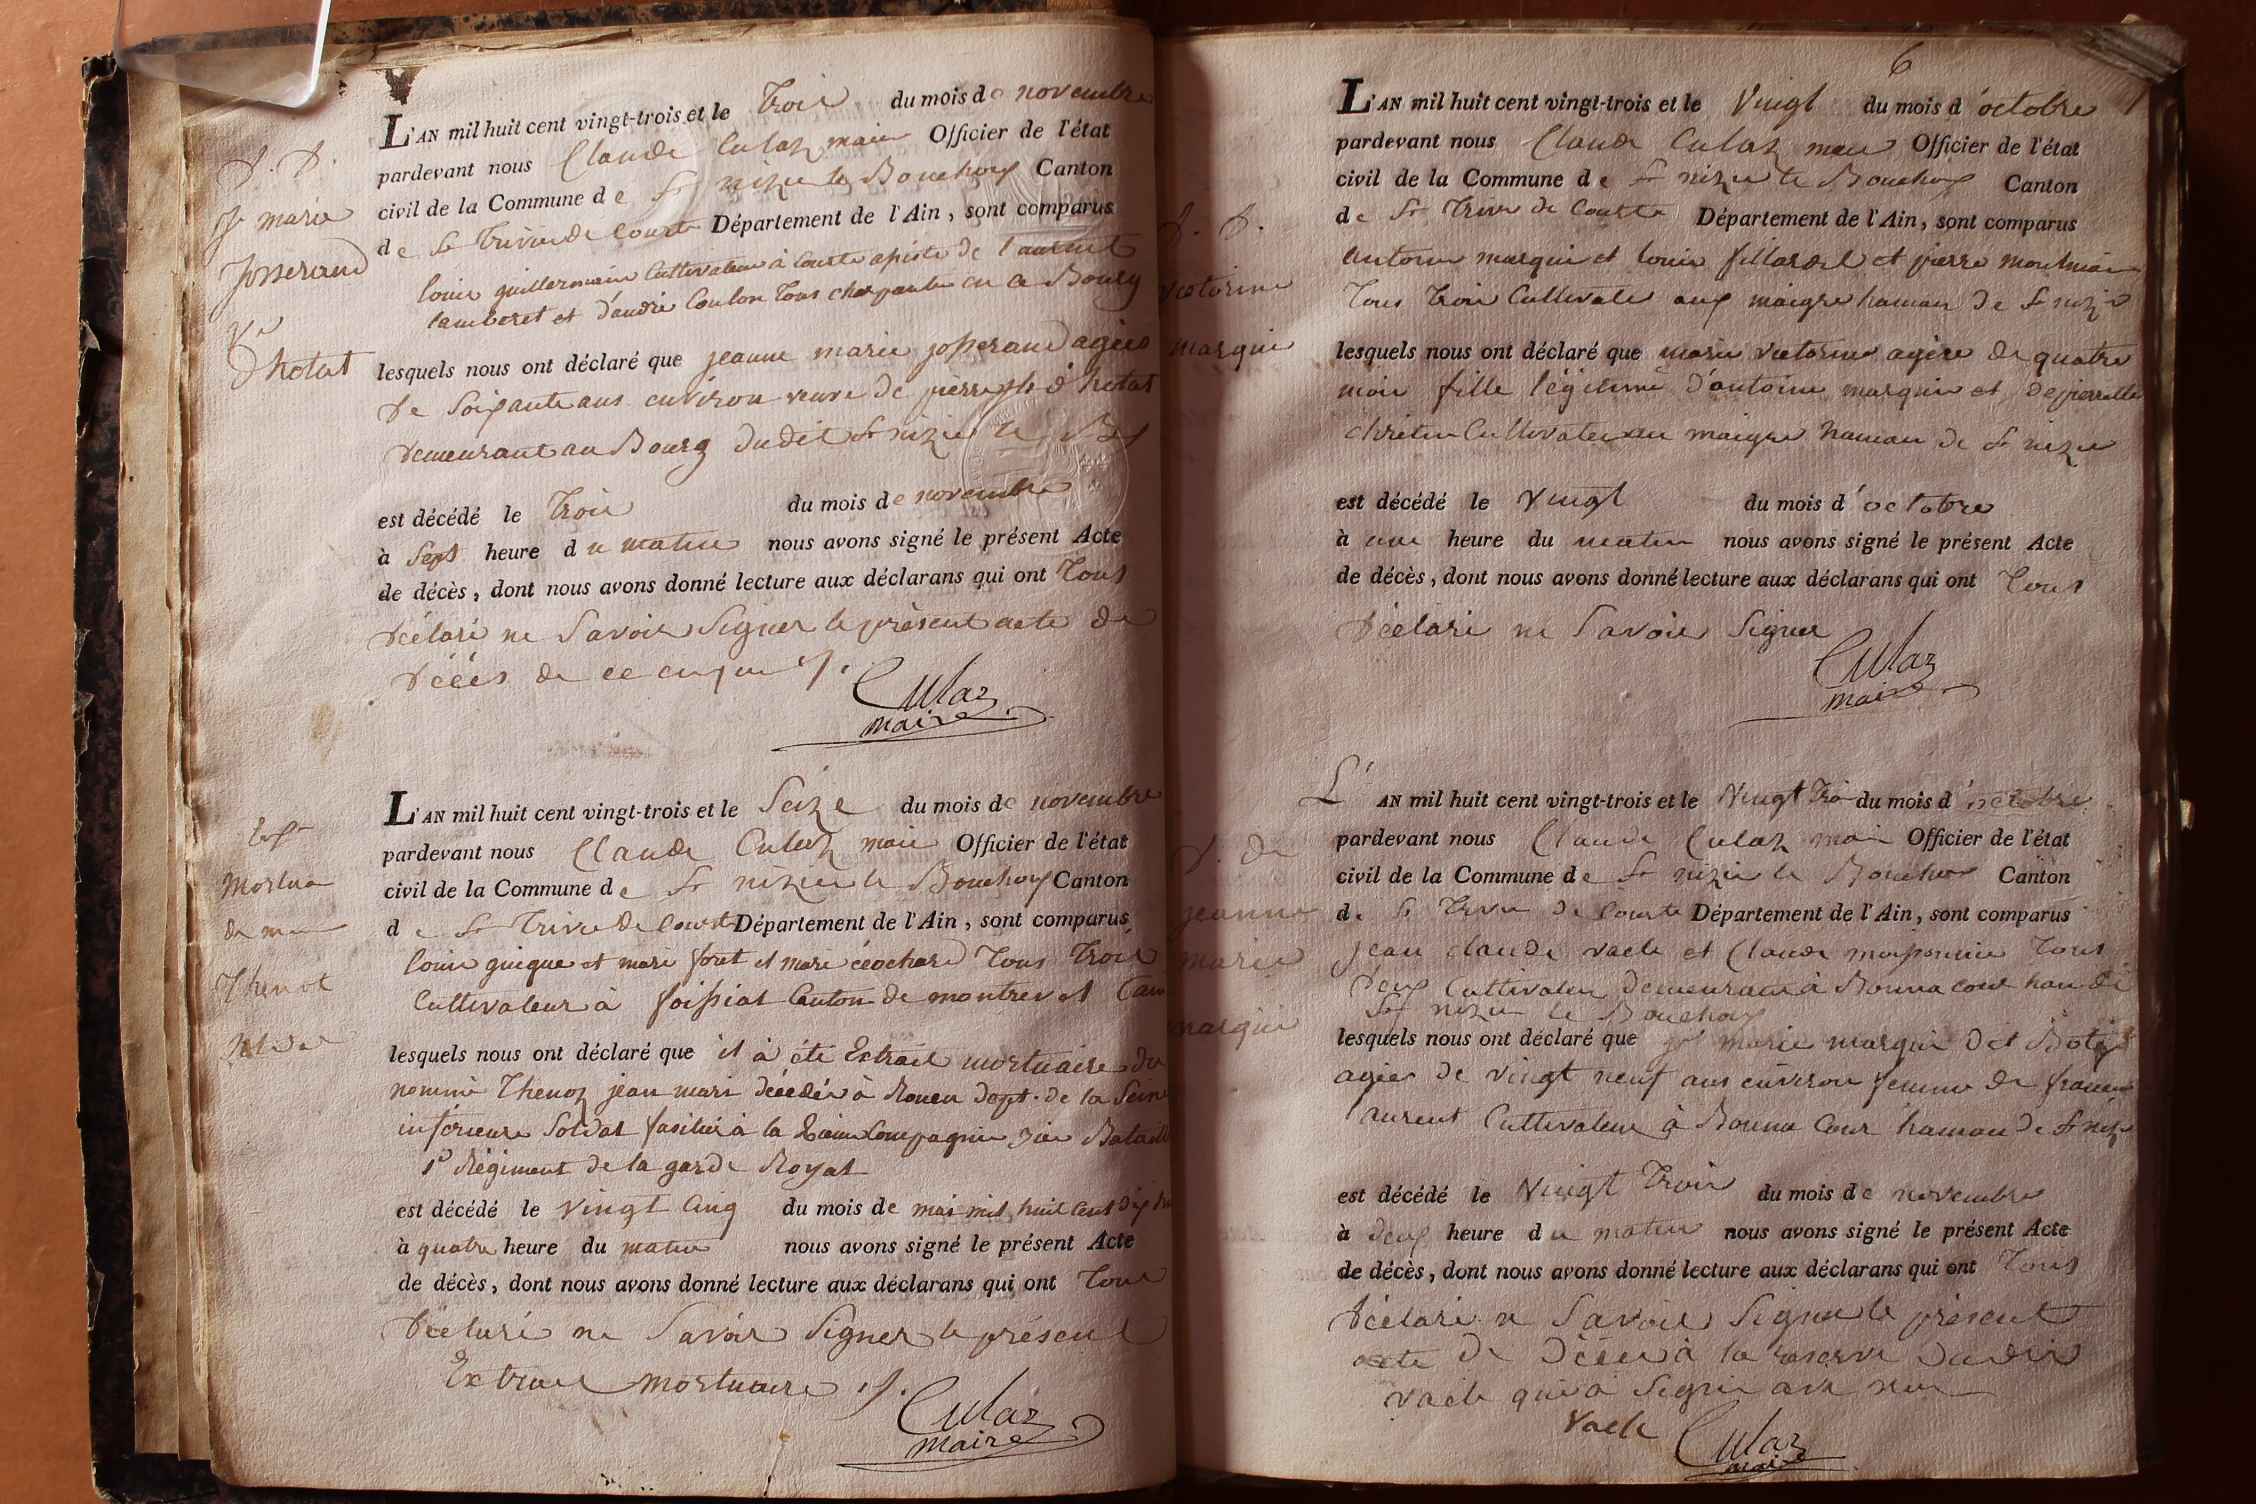 A. D.
je marie
Josserand
Ve
Dhotat
L'AN mil huit cent vingt-trois et le Trois du mois de novembre
pardevant nous Claude Culaz maire Officier de l'état
civil de la Commune de St nizier le Bouchoux Canton
de St Trivier de Courte Département de l'Ain, sont comparus
louis guillermain Cultivateur à Courte de
et d'andré Coulon Tous en ce Bourg
lesquels nous ont déclaré que jeanne marie josserand agèes
De Soixante ans environ veuve de pierre d'hotat
Demeurant au Bourg Dudit St nizier le
est décédé le Trois du mois de novembre
à Sept heure du matin nous avons signé le présent Acte
de décès, dont nous avons donné lecture aux déclarans qui ont Tous
Déclaré ne Savoir Signer le présent acte de
Décès de ce
Culaz
maire
Mortua
Thenot
Soldat
L'AN mil huit cent vingt-trois et le Seize du mois de novembre
pardevant nous Claude Culaz maire Officier de l'état
civil de la Commune de St nizier le Bouchoux Canton
de St Trivier de Courte Département de l'Ain, sont comparus
louis guigue et mari foret et mari Tous Trois
Cultivateur à foissiat Canton de montrevel
lesquels nous ont déclaré que il à été Extrait mortuaire du
nommé Thenoz jean mari décédé à Rouen Dept. de la Seine
inférieure Soldat fusilié à la Compagnie Bataill
1r Régiment de la garde Royal
est décédé le vingt Cinq du mois de mai mil huit Cent Dix
à quatre heure du matin nous avons signé le présent Acte
de décès, dont nous avons donné lecture aux déclarans qui ont Tous
Décluré ne Savoir Signer le présent
Extrait mortuaire
Culaz
maire
6
A. D.
victorine
marquis
L'AN mil huit cent vingt-trois et le Vingt du mois d'octobre
pardevant nous Claude Culaz maire Officier de l'état
civil de la Commune de St nizier le Bouchoux Canton
de St Trivier de Courte Département de l'Ain, sont comparus
antoine marquis et louis fillardet et pierre montmain
Tous Trois Cultivateur aux maigre hamau de St nizié
lesquels nous ont déclaré que marie victorine agèe de quatre
mois fille légitime d'antoine marquis et de pierrette
chrétin Cultivateur au maigre hamau de St nizier
est décédé le Vingt du mois d'octobre
à une heure du matin nous avons signé le présent Acte
de décès, dont nous avons donné lecture aux déclarans qui ont Tous
Déclaré ne Savoir Signer
Culaz
maire
A. de
jeanne
marie
marquis
L'AN mil huit cent vingt-trois et le Vingt Trois du mois d'octobre
pardevant nous Claude Culaz maire Officier de l'état
civil de la Commune de St nizier le Bouchoux Canton
de St Trivier de Courte Département de l'Ain, sont comparus
jean claude vacle et Claude Tous
Deux Cultivateur Demeurant à Bonna cour ham de
St nizier le Bouchoux
lesquels nous ont déclaré que marie marquis dit
agèe de vingt neuf ans environ femme de
Cultivateur à Bonna Cour hamau de St niz
est décédé le Vingt Trois du mois de novembre
à Deux heure du matin nous avons signé le présent Acte
de décès, dont nous avons donné lecture aux déclarans qui ont Tous
Déclaré ne Savoir Signer le présent
acte de Décès à la réserve dudit
vacle qui à Signé avec nous
Vacle
Culaz
maire